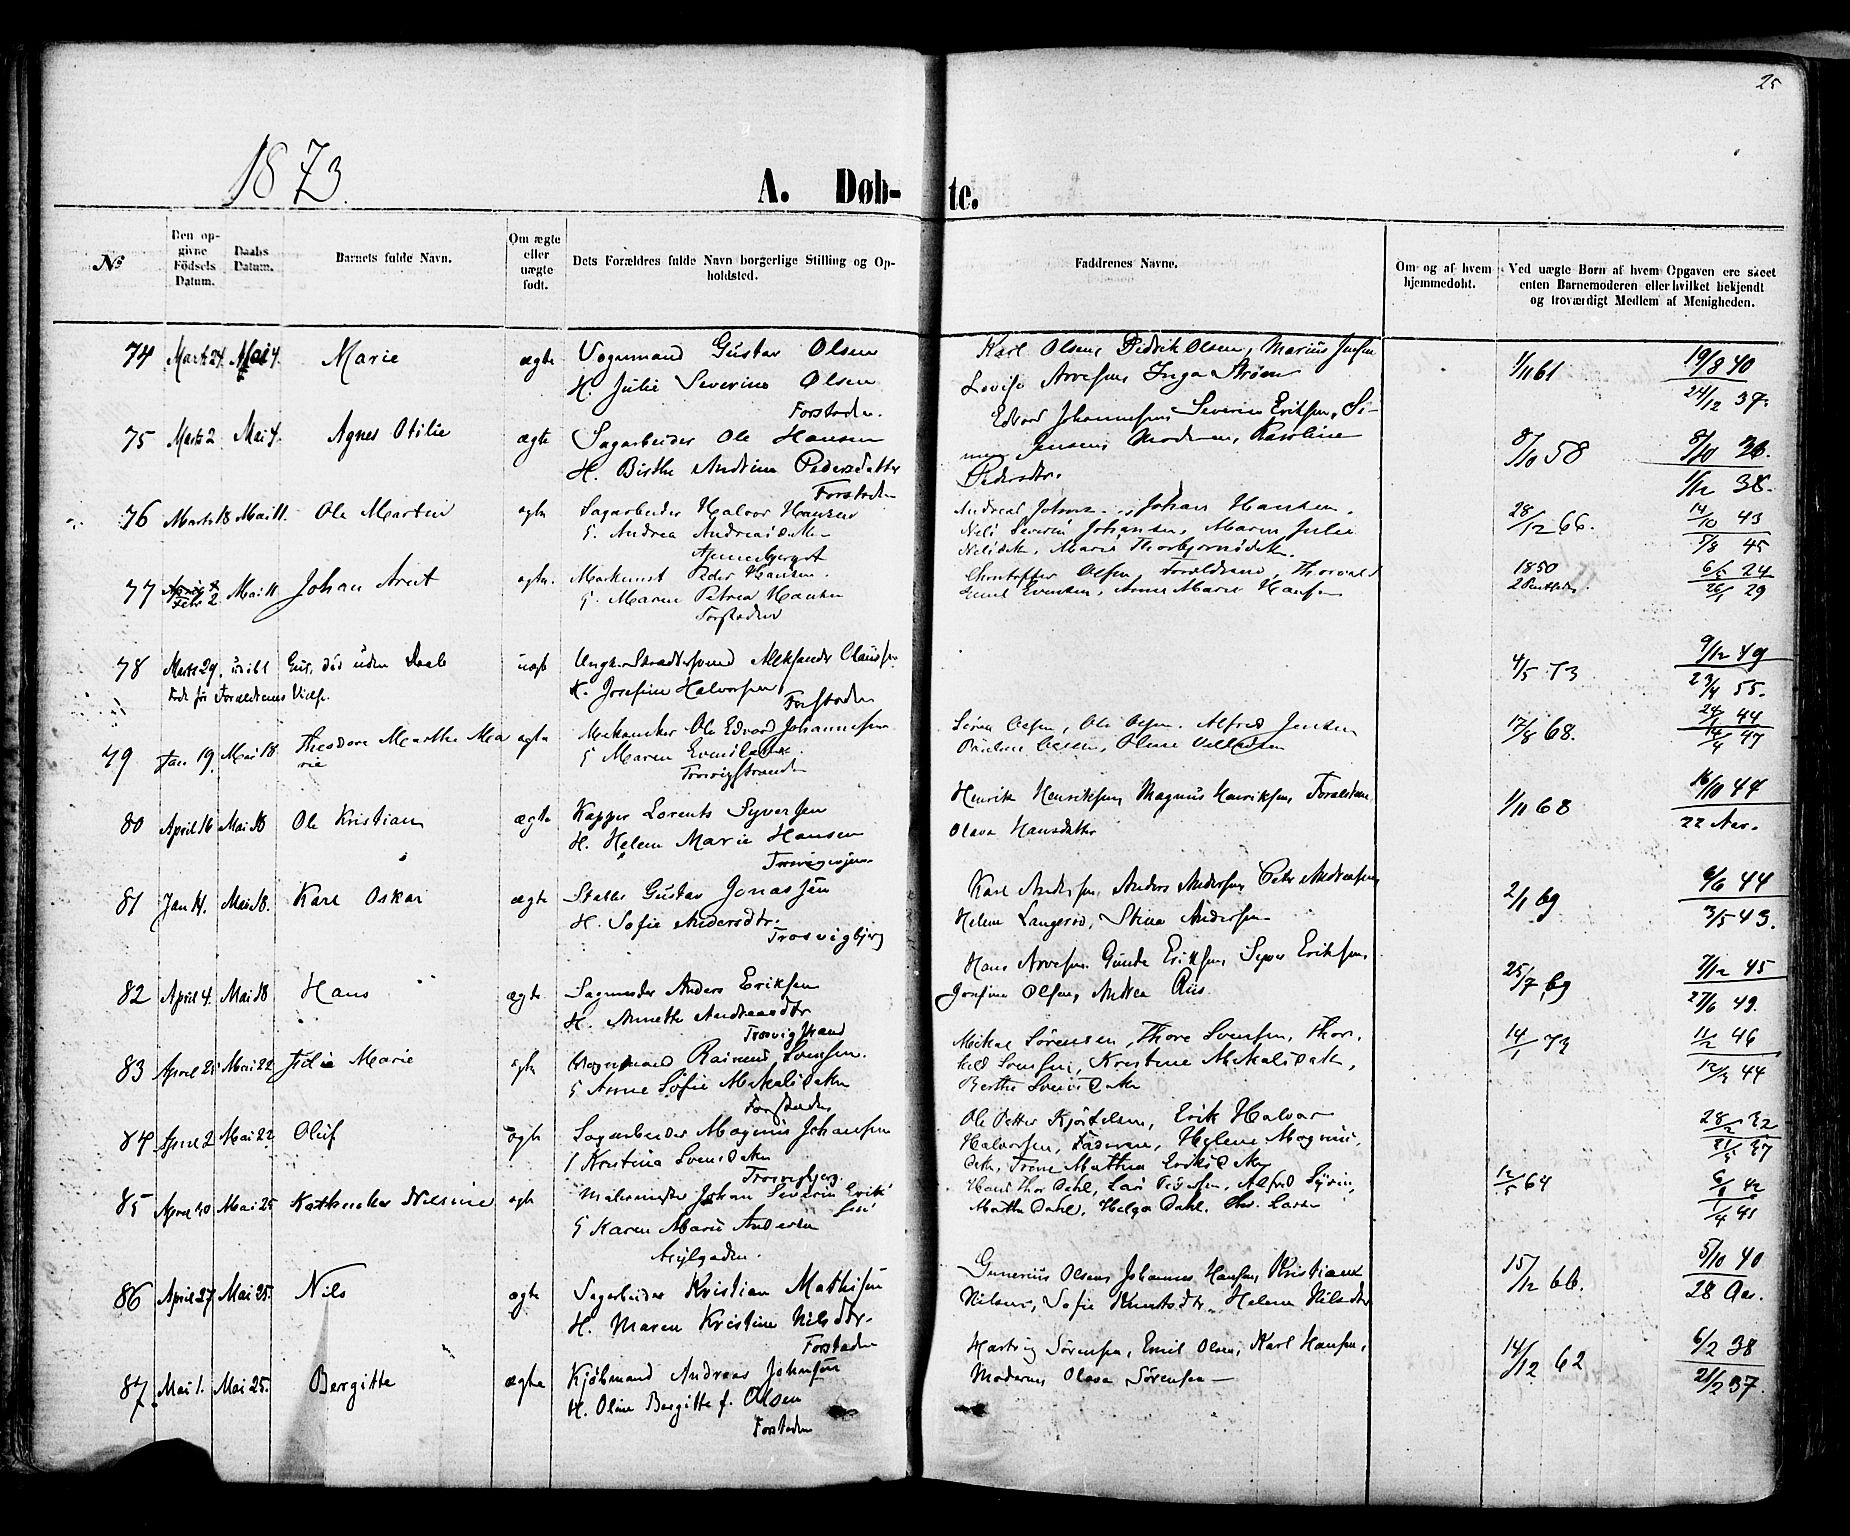 25
1873.
A. Døb- te.
No
Den op-
givne
Födsels
Datum.
Daabs
Datum.
Barnets fulde Navn.
Om ægte
eller
uægte
født.
Dets Forældres fulde Navn borgerlige Stilling og Op-
holdsted.
Faddrenes Navne.
Om og af hvem
hjemmedøbt.
Ved uægte Børn af hvem Opgaven ere skeet
enten Barnemoderen eller hvilket bekjendt
og troværdigt Medlem af Menigheden.
74 Marts 24. Mai 4. Marie ægte Vognmand Gustav Olsen
H. Julie Severine Olsen
Forstaden.
Karl Olsen, Pedrik Olsen, Marius Jensen
Lovise Arvesen, Inga Strøm
1/11 61
19/8 40
24/12 37.
75 Marts 2. Mai 4. Agnes Otilie ægte Sagarbeider Ole Hansen
H. Birthe Andrine Pedersdatter
Forstaden
Edvard Johannesen, Severin Eriksen, Si-
mon Jensen, Moderen, Karoline
Pedersdtr.
8/10 58
8/10 36.
1/12 38.
76 Marts 18 Mai 11. Ole Martin ægte Sagarbeider Halvor Hansen
H. Andrea Andreasdatter
Johan Hansen,
Nils Severin Johansen, Maren Julie
Nilsdtr, Marie Thorbjørnsdtr.
28/12 66.
14/10 43
5/8 45
77 Febr 2 Mai 11 Johan Arnt ægte. Peder Hansen.
H. Maren Petrea Hansen
Forstaden
Christoffer Olsen, Forældrene, Thorvald
Emil Evensen, Anne Marie Hansen
1850
6/5 24
26/1 29
78 Marts 29. Gut, død uden Daab uægte Aleksander Clausen
H. Josefine Halvorsen
Forstaden
født før Forældrenes Vielse.
4/5 73
9/12 49
23/4 55.
79 Jan 19. Mai 18. Theodora Marthe Ma
rie ægte Mekaniker Ole Edvard Johannesen
H Maren Evensdatter
Trosvigstranden
Søren Olsen, Ole Olsen, Alfred Jensen
17/8 68.
24/1 44
14/4 47
80 April 16 Mai 18 Ole Kristian ægte Kapper Lorents Syversen
H. Helene Marie Hansen
Henrik Henriksen, Magnus Henriksen, Forældrene,
Olava Hansdatter
1/11 68
16/10 44
22 Aar.
81 Jan 14. Mai 18. Karl Oskar ægte Gustav Jonassen
H. Sofie Andersdtr.
Trosvigbjerg
Karl Andersen, Anders Andersen, Peter Andreasen,
Helene Langerød, Stina Andersen
2/1 69
6/6 44
3/5 43.
82 April 4. Mai 18 Hans ægte Sagmester Anders Eriksen
H. Annette Andreasdtr
Trosvigstrand
Hans Arvesen, Gunde Eriksen, Syver Eriksen,
Josefine Olsen, Andrea Riis.
25/7 69
7/12 45
27/6 49.
83 April 21 Mai 22 Julie Marie ægte Vognmand Svensen.
H Anne Sofie Mikalsdatter
Forstaden
Mikal Sørensen, Thore Svensen, Thor-
kild Svensen, Kristine Mikalsdatter,
Berthe Svensdatter
14/1 73
11/2 46
12/3 44
84 April 2 Mai 22 Oluf ægte Sagarbeider Magnus Johansen
H Kristina Svensdatter
Trosvigbjerg
Ole Petter Kjøtelsen, Erik Halvor
Halvorsen, Faderen, Helene Magnus-
datter, Trine Mathea Eriksdatter
28/2 32
21/5 37
85 April 30 Mai 25 Kathinka Nilsine ægte Malermester Johan Severin Erik-
sen
H Karen Marie Andersen
Asylgaden.
Hans Thor Dahl, Lars Petersen, Alfred
Marthe Dahl, Helga Dahl, Chr. Larsen
12/5 64
6/8 42
1/4 41
86 April 27 Mai 25. Nils ægte Sagarbeider Kristian Mathisen
H. Maren Kristine Nilsdtr.
Forstaden
Gunerius Olsen, Johannes Hansen, Kristian
Nilsen, Sofie Knutsdtr, Helene Nilsdtr
15/12 66.
5/10 40
28 Aar.
87 Mai 1. Mai 25. Bergitte ægte Kjøbmand Andreas Johnsen
H. Oline Bergitte f. Olsen
Forstaden
Hartvig Sørensen, Emil Olsen, Karl Hansen,
Moderen, Olava Sørensen
14/12 62
6/2 38
21/2 37.